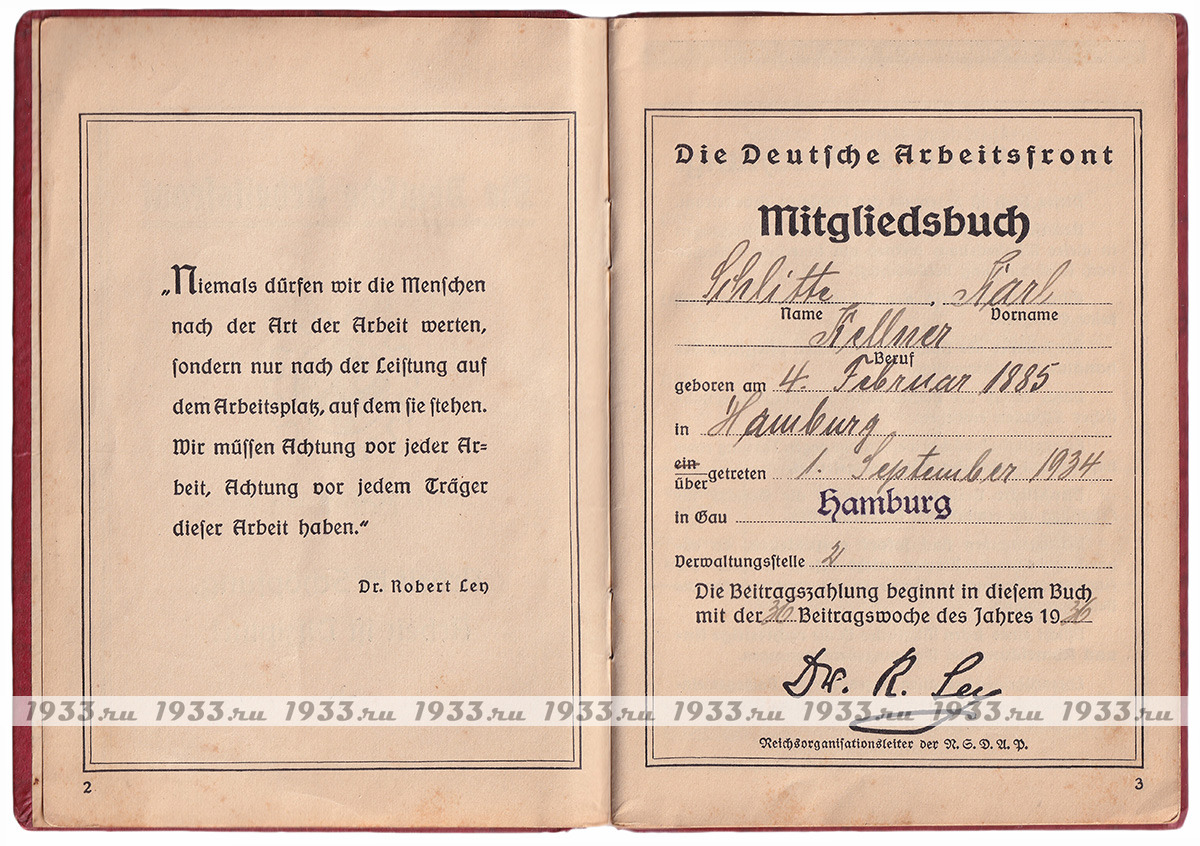 „Niemals dürfen wir die Menſchen
nach der Art der Arbeit werten,
ſondern nur nach der Leiſtung auf
dem Arbeitsplatz, auf dem ſie ſtehen.
Wir müſſen Achtung vor jeder Ar-
beit, Achtung vor jedem Träger
dieſer Arbeit haben.“
Dr. Robert Ley
2
Die Deutſche Arbeitsfront
Mitgliedsbuch
Schlitte, Karl
Name Vorname
Kellner
Beruf
geboren am 4. Februar 1885
in Hamburg
ein-
über getreten 1. September 1934
in Gau Hamburg
Verwaltungsſtelle 2
Die Beitragszahlung beginnt in dieſem Buch
mit der 36 Beitragswoche des Jahres 1936
Dr. R. Ley
1933.ru 1933.ru 1933.ru 1933.ru 1933.ru 1933.ru 1933.ru 1933.ru 1933.ru
Reichsorganiſationsleiter der N. S. D. A. P.
3